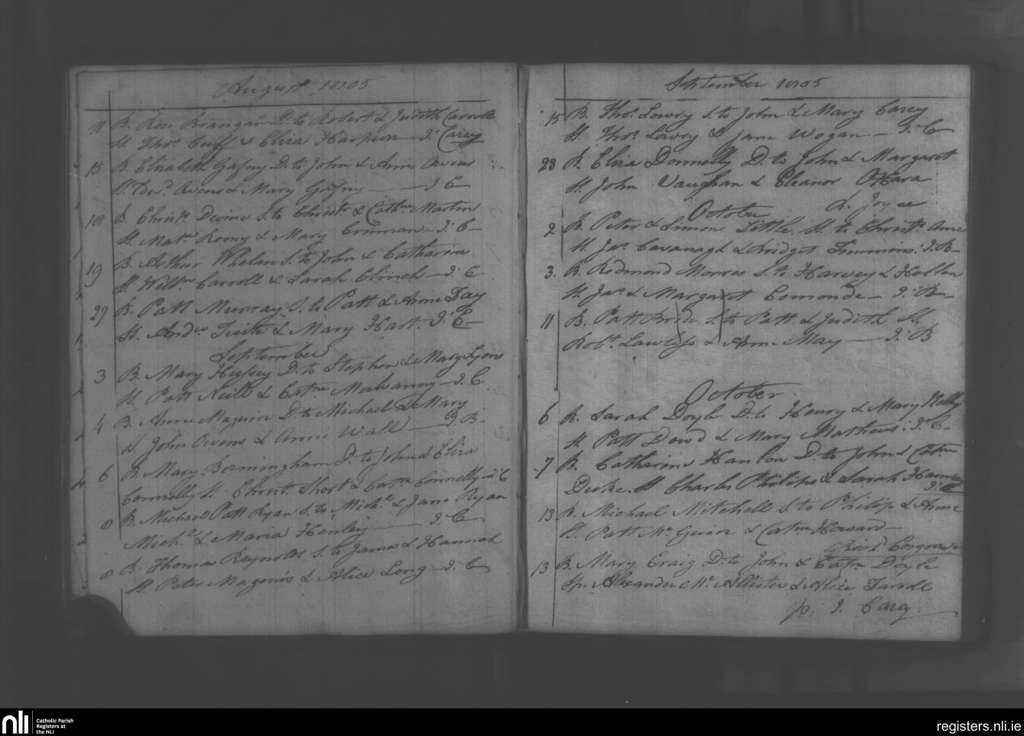 August 1805
11 B. Rose Branigan D. to Robert & Judith Carroll
St. Thos. Cuff & Eliza Harpien J: Carey
15 B. Elizabeth Gafny D. to John & Anne Owens
Owens & Mary Gafny J C
18 B. Christr. Devine S. to Christr. & Cathn. Martin
St. Matw. Roony & Mary J. C
19 B. Arthur Whelan S. to John & Catharine
St. Willm. Carroll & Sarah Clinch J: C
29 B. Patt Murray S. to Patt & Anne Fay
St. Andw. Tuite & Mary Hart. J. C
September
3 B. Mary Hussy D. to Stephen & Mary Lyons
St. Patt Neill & Cathn. Mulvanny J. C
4 B. Anne Maguire D. to Michael & Mary
St. John Owens & Anne Wall J. B.
6 B. Mary Bermingham D. to John & Eliza
Connolly St. Christr. Short & Cathn. Connolly J. C
8 B. Michael Patt Ryan S. to Michl. & Jane Ryan
Michl. & Maria Henley J. C
8 B. Thomas Reynolds S. to James & Hannah
St. Peter Magenis & Alice Long J. C
September 1805
15 B. Thos. Lowry S. to John & Mary Carey
St. Thos. Lowry & Jane Wogan J. C
28 B. Eliza Donnelly D. to John & Margaret
St. John Vaughan & Eleanor OHara
A. Joyce
October
2 B. Peter & Simon Little St. to Christr. Anne
St. Jas. Cavanagh & Bridget Timmins: J. B.
3. B. Redmond Morres S. to Harvey & Hellen
St. Jas. & Margaret J: B
11 B. Patt Bride S. to Patt & Judith St.
Robt. Lawless & Anne May J. B
October
6 B. Sarah Doyle D. to Henry & Mary Kelly
St. Patt Dowd & Mary Mathews: J. C.
7 B. Catharine Hanlon D. to John & Cathn.
Deike. St. Charles Philips & Sarah
J. C
13 B. Michael Mitchell S. to Philip & Anne
St. Patt Mc Guire & Cathn. Howard
Revd. Cosgrave
13 B. Mary Craig D. to John & Cathn. Doyle
Sp. Alexander Mc Allister & Alice
p. J. Carey
nli
Catholic Parish
Registers at
the NLI
registers.nli.ie